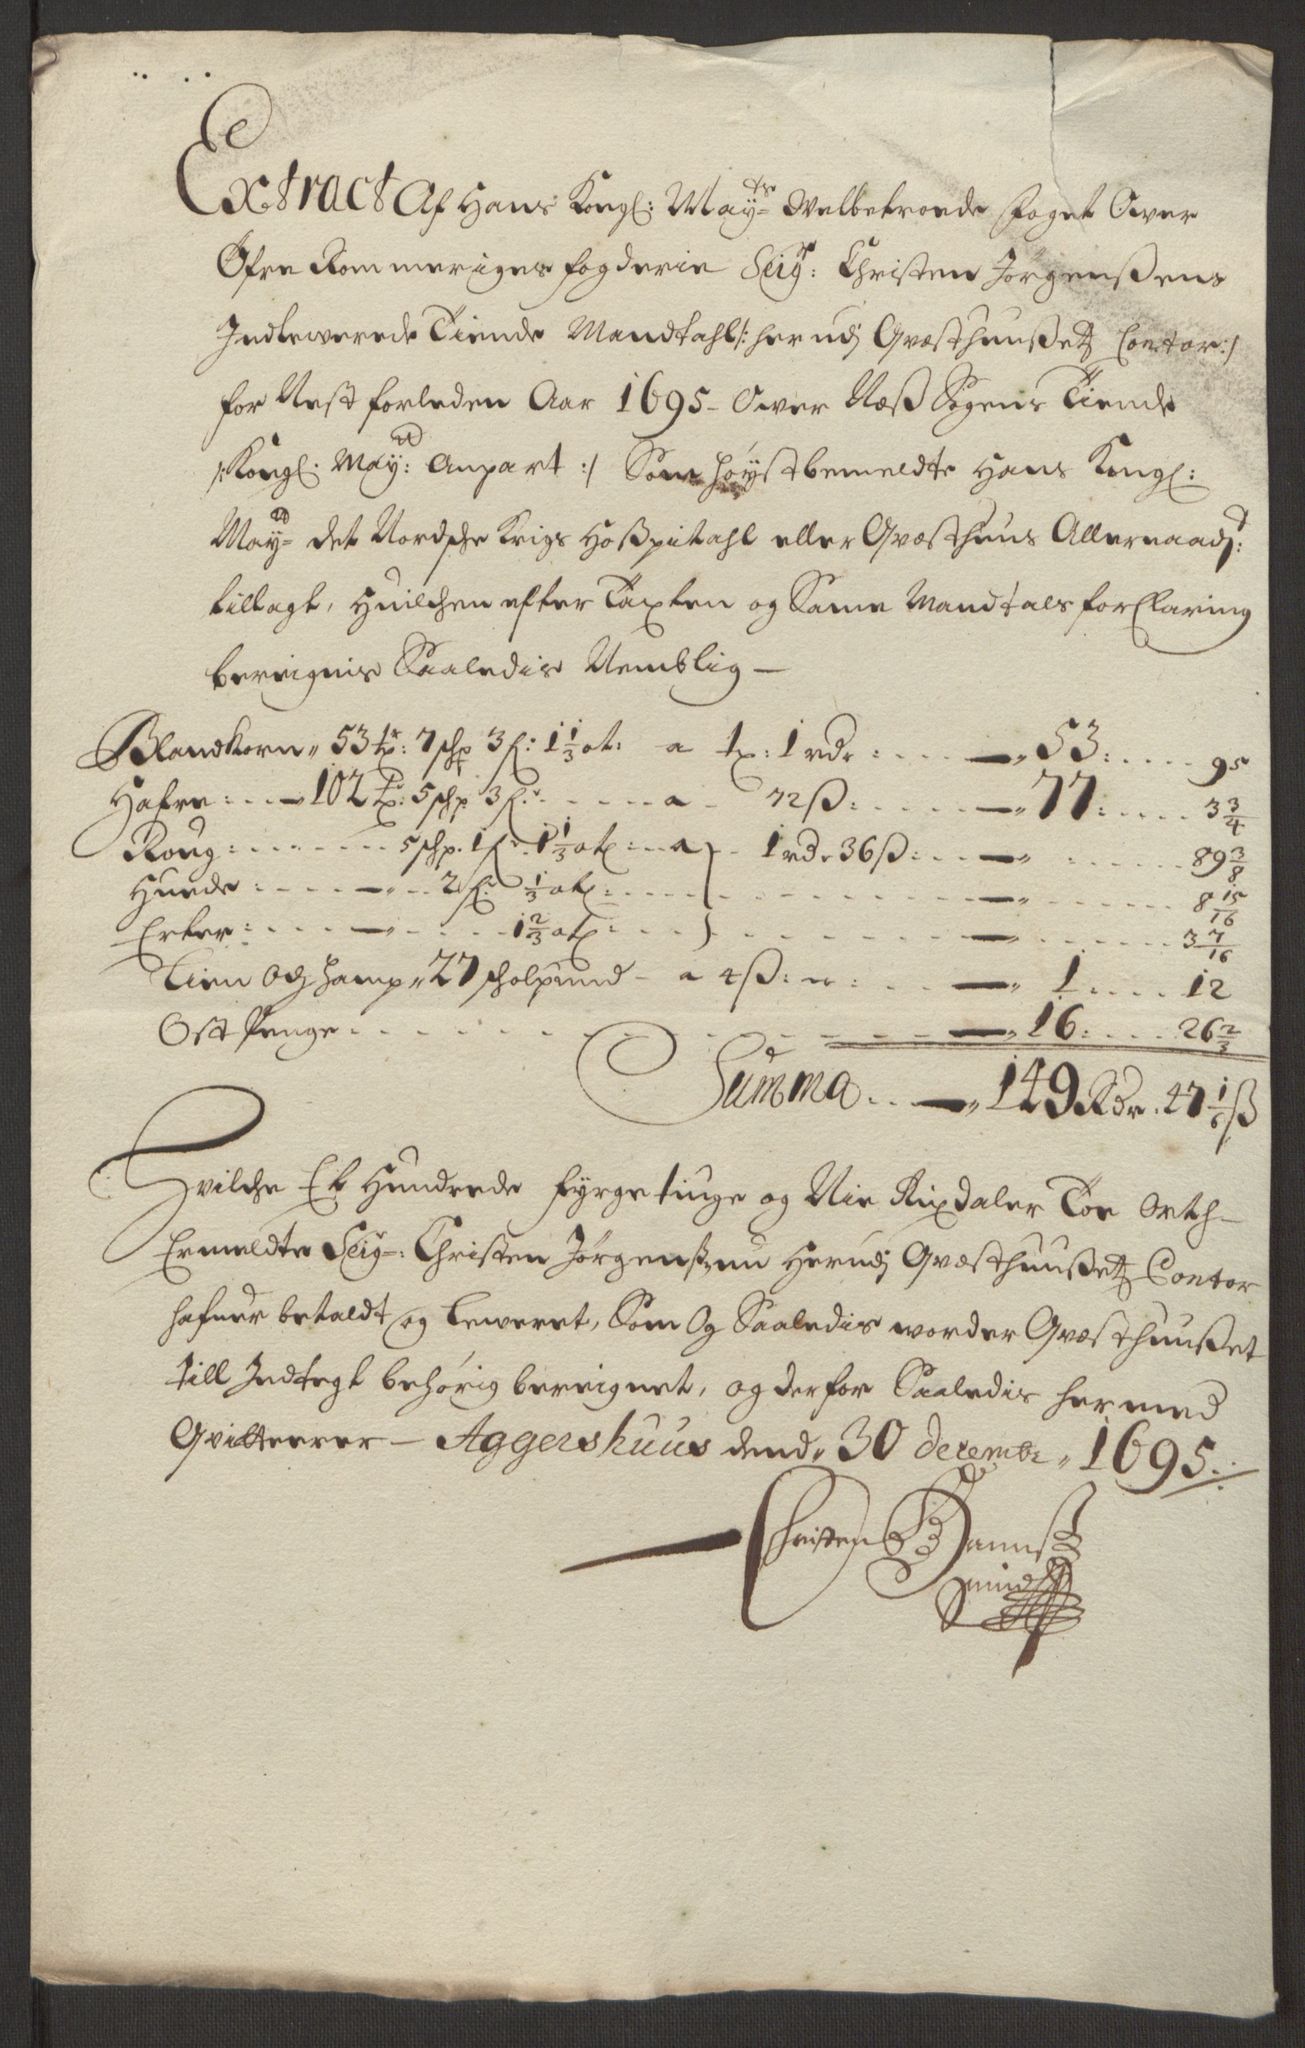 Extract Af Hans Kongl: May:ts Welbetroede foget Ower
Øfre Rommeriges fogderie Seig:r Christen Jörgenßens
Indleverede Tiende Mandtahl /: her udj Gvæsthuußetz Contor :/
for Nest forleden Aar 1695 - Ower Næß Sogens Tiende
/: Kongl: May:tt Anpart :/ Som höystbemeldte Hans Kongl:
May:tt det Nordsche Krigs Hoßpitahl eller Gvæsthuus Allernaadj:st
tillagt, Huilchen efter Taxten og Same Mandtals forklaring
bereignis Saaledis Nemblig -
Blandkorn " 53 tr: 7 schp 3 f: 1 1/3 ot: a tr: 1 rdr : - 53 : 95
Hafre : 102 tr: 5 schp 3 f: a 72 ß : - 77 : 3 3/4
Roug : 5 schp. 1 f: 1 1/3 otl : a } 1 rdr 36 ß : - 89 3/8
Huede : 2 f: 1/3 otl : - 8 15/16
Erter : 1 2/3 otl : } - 3 7/16
Lien Och hamp " 27 scholpund - a 4 ß : - 1 : 12
Ost Penge : - 16 : 26 2/3
Summa - 149 Rdr. 47 1/6 ß
Hvilche Et Hundrede fyrgetiuge og Nie Rixdaler Toe Orth -
Ermeldte Seig:r Christen Jörgenßen nu Herudj Gvæsthuußetz Contor
hafuer betaldt og Leweret, Som Og Saaledis worder Gvæsthuußet
till Indtegt behörig bereignet, og derfor Saaledis hermed
Qvitterer - Aggershuus dend " 30 decembr " 1695 :
Christen